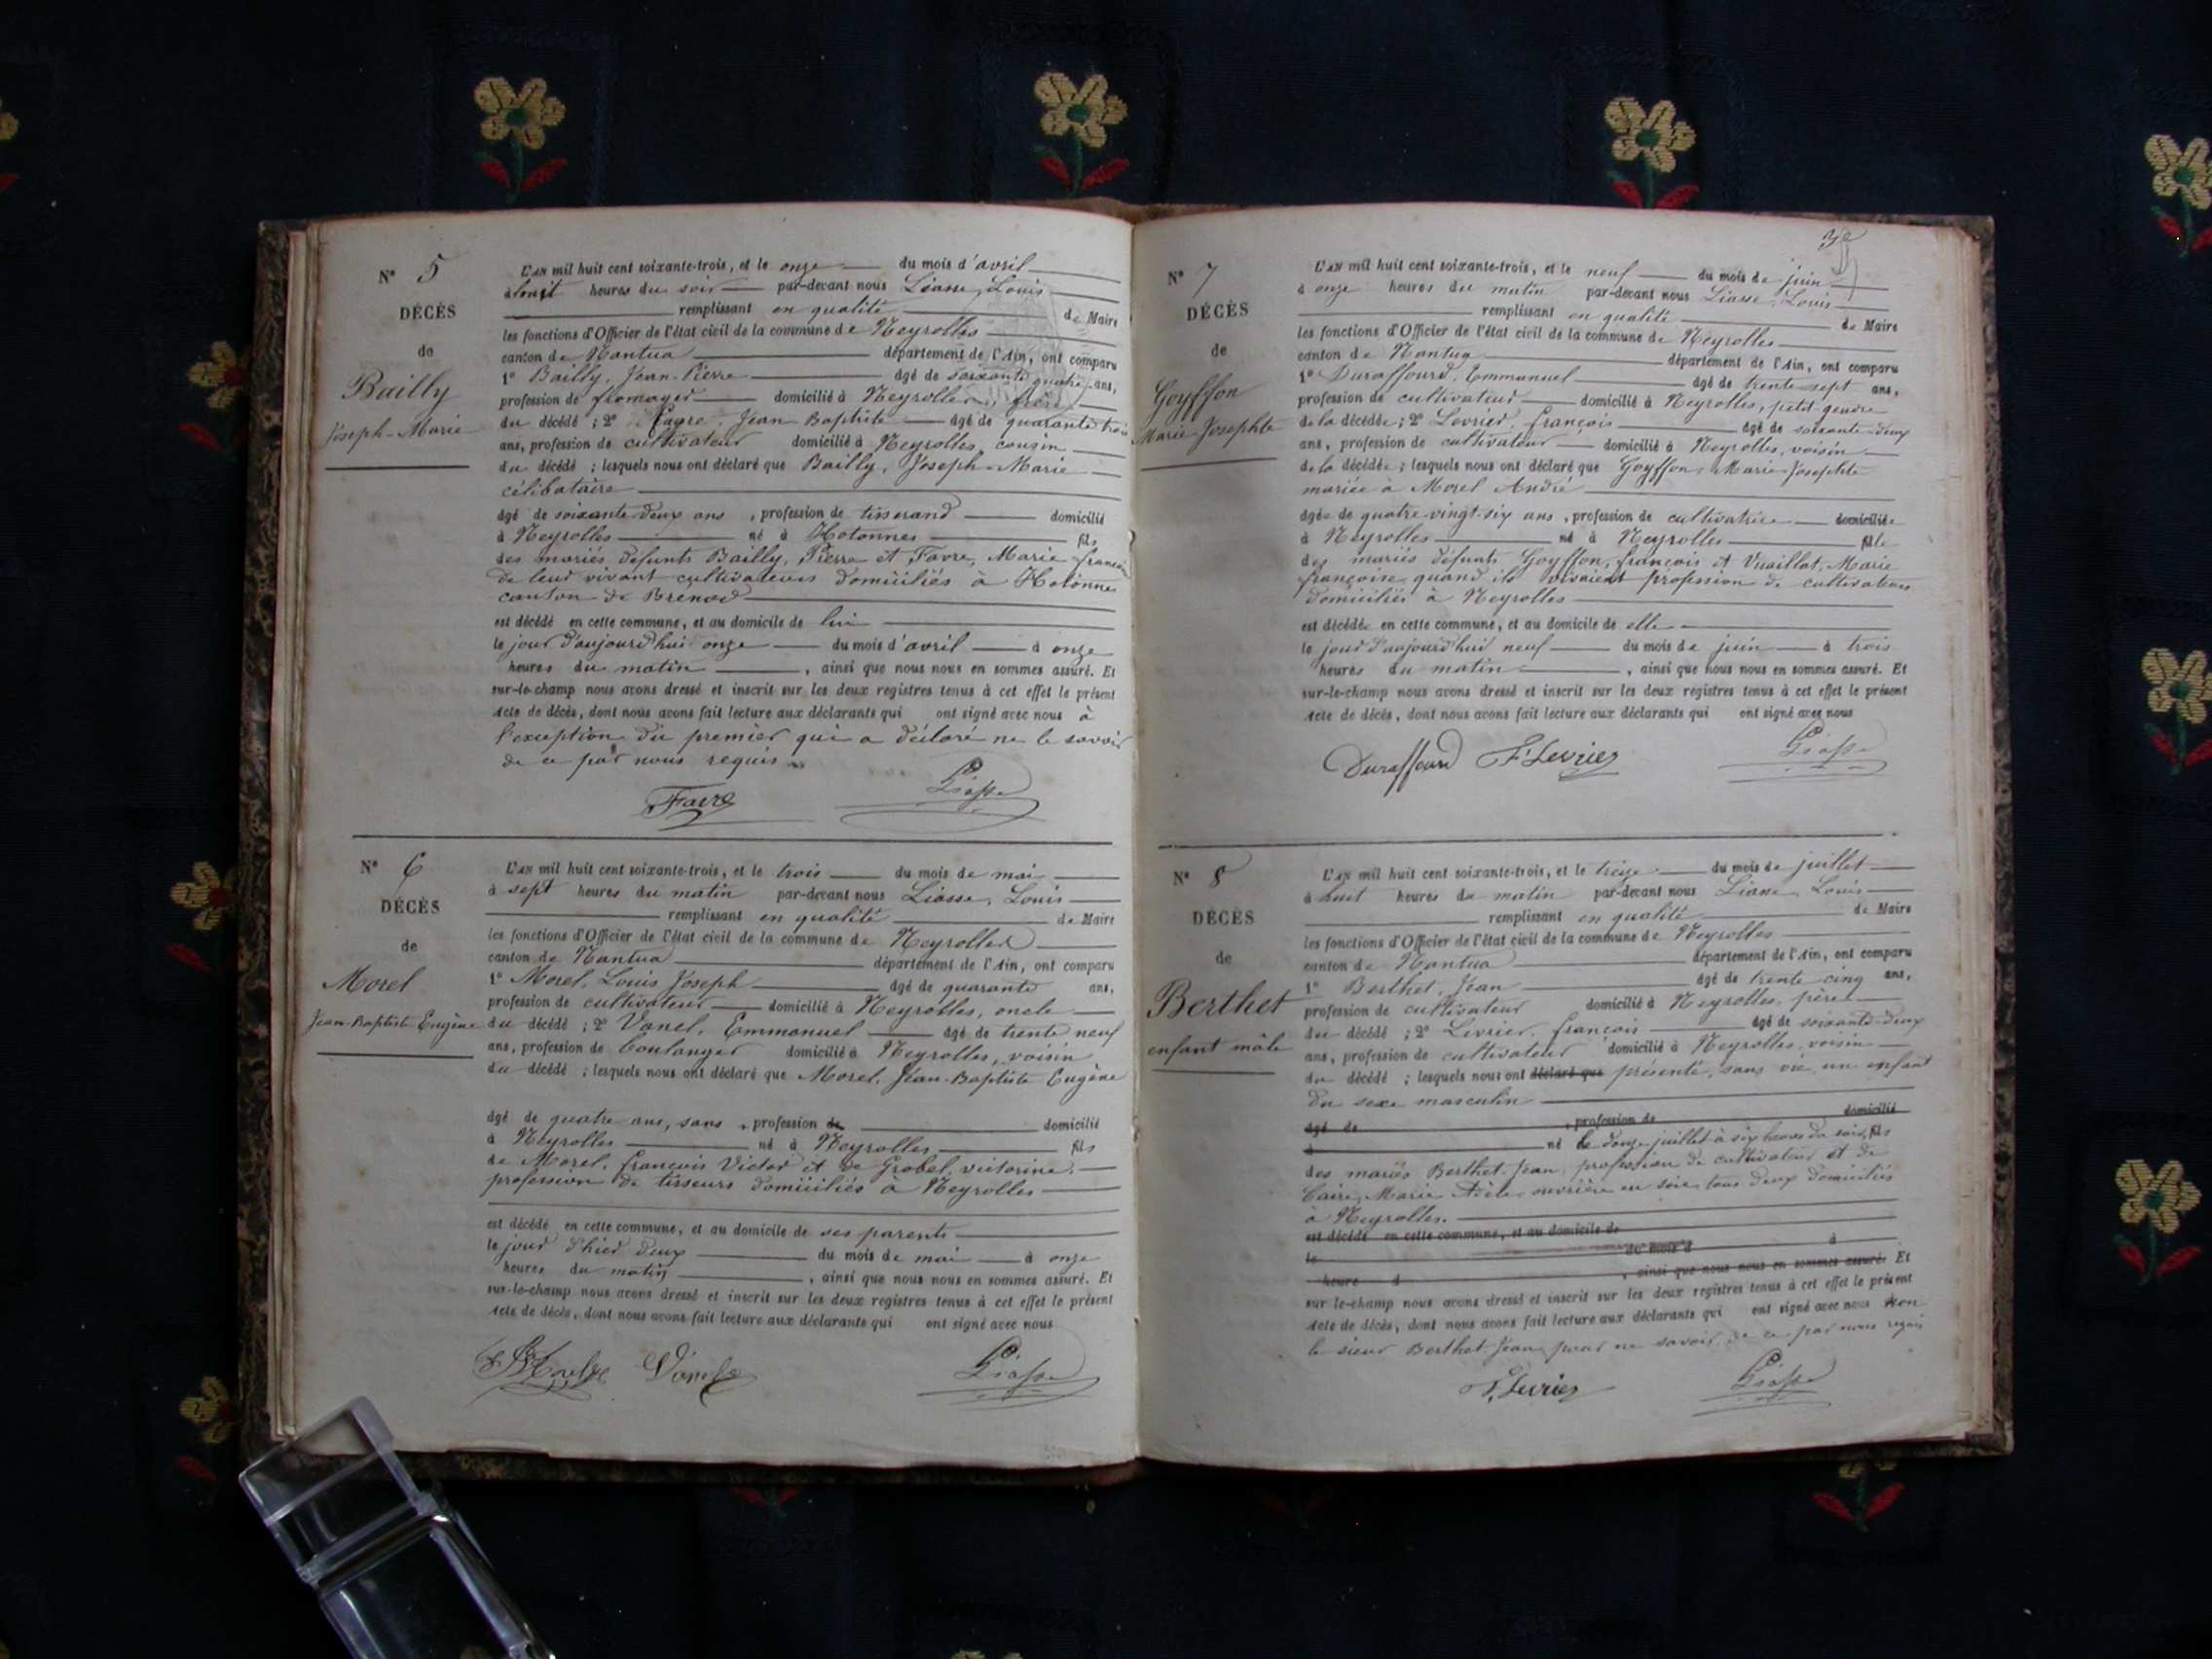 N° 5
DÉCÈS
de
Bailly
Joseph-Marie
L'AN mil huit cent soixante-trois, et le onze du mois d'avril
à huit heures du soir par-devant nous Liasse, Louis
remplissant en qualité de Maire
les fonctions d'Officier de l'état civil de la commune de Neyrolles
canton de Nantua département de l'Ain, ont comparu
1° Bailly, Jean-Pierre âgé de soixante quatre ans,
profession de fromager domicilié à Neyrolles, frère
du décédé ; 2° Favre, Jean Baptiste âgé de quarante trois
ans, profession de cultivateur domicilié à Neyrolles, cousin
du décédé ; lesquels nous ont déclaré que Bailly, Joseph-Marie
célibataire
âgé de soixante deux ans , profession de tisserand domicilié
à Neyrolles né à Hotonnes fils
des mariés défunts Bailly, Pierre et Favre, Marie
de leur vivant cultivateurs domiciliés à Hotonnes
canton de Brenod
est décédé en cette commune, et au domicile de lui
le jour d'aujourd'hui onze du mois d'avril à onze
heures du matin , ainsi que nous nous en sommes assuré. Et
sur-le-champ nous avons dressé et inscrit sur les deux registres tenus à cet effet le présent
acte de décès, dont nous avons fait lecture aux déclarants qui ont signé avec nous à
l'exception du premier qui a déclaré ne le savoir
de ce par nous requis
Favre Liasse
N° 6
DÉCÈS
de
Morel
Jean-Baptiste Eugène
L'AN mil huit cent soixante-trois, et le trois du mois de mai
à sept heures du matin par-devant nous Liasse, Louis
remplissant en qualité de Maire
les fonctions d'Officier de l'état civil de la commune de Neyrolles
canton de Nantua département de l'Ain, ont comparu
1° Morel, Louis Joseph âgé de quarante ans,
profession de cultivateur domicilié à Neyrolles, oncle
du décédé ; 2° Vanel, Emmanuel âgé de trente neuf
ans, profession de boulanger domicilié à Neyrolles, voisin
du décédé ; lesquels nous ont déclaré que Morel, Jean-Baptiste Eugène
âgé de quatre ans, sans , profession de domicilié
à Neyrolles né à Neyrolles fils
de Morel, françois Victor et de Grobel, victorine,
profession de tisseurs domiciliés à Neyrolles
est décédé en cette commune, et au domicile de ses parents
le jour d'hier deux du mois de mai à onze
heures du matin , ainsi que nous nous en sommes assuré. Et
sur-le-champ nous avons dressé et inscrit sur les deux registres tenus à cet effet le présent
acte de décès, dont nous avons fait lecture aux déclarants qui ont signé avec nous
Liasse
N° 7
DÉCÈS
de
Goyffon
Marie-Josephte
L'AN mil huit cent soixante-trois, et le neuf du mois de juin
à onze heures du matin par-devant nous Liasse, Louis
remplissant en qualité de Maire
les fonctions d'Officier de l'état civil de la commune de Neyrolles
canton de Nantua département de l'Ain, ont comparu
1° Duraffourd, Emmanuel âgé de trente sept ans,
profession de cultivateur domicilié à Neyrolles, petit gendre
de la décédée ; 2° Levrier, françois âgé de soixante-deux
ans, profession de cultivateur domicilié à Neyrolles, voisin
de la décédée ; lesquels nous ont déclaré que Goyffon, Marie-Josephte
mariée à Morel André
âgée de quatre-vingt-six ans , profession de cultivatrice domiciliée
à Neyrolles né à Neyrolles fille
des mariés défunts Goyffon, françois et Vuaillat, Marie
françoise, quand ils vivaient profession de cultivateurs
domiciliés à Neyrolles
est décédée en cette commune, et au domicile de elle
le jour d'aujourd'hui neuf du mois de juin à trois
heures du matin , ainsi que nous nous en sommes assuré. Et
sur-le-champ nous avons dressé et inscrit sur les deux registres tenus à cet effet le présent
acte de décès, dont nous avons fait lecture aux déclarants qui ont signé avec nous
Duraffourd F. Levrier Liasse
N° 8
DÉCÈS
de
Berthet
enfant mâle
L'AN mil huit cent soixante-trois, et le treize du mois de juillet
à huit heures du matin par-devant nous Liasse, Louis
remplissant en qualité de Maire
les fonctions d'Officier de l'état civil de la commune de Neyrolles
canton de Nantua département de l'Ain, ont comparu
1° Berthet, Jean âgé de trente cinq ans,
profession de cultivateur domicilié à Neyrolles, père
du décédé ; 2° Levrier, françois âgé de soixante-deux
ans, profession de cultivateur domicilié à Neyrolles, voisin
du décédé ; lesquels nous ont déclaré que présenté, sans vie, un enfant
du sexe masculin
âgé de , profession de domicilié
à né le douze juillet à six heures du soir, fils
des mariés Berthet Jean, profession de cultivateur et de
Caire, Marie Adèle ouvrière en soie, tous deux domiciliés
à Neyrolles.
est décédé en cette commune, et au domicile de
le du mois d à
heure d , ainsi que nous nous en sommes assuré. Et
sur-le-champ nous avons dressé et inscrit sur les deux registres tenus à cet effet le présent
acte de décès, dont nous avons fait lecture aux déclarants qui ont signé avec nous non
le sieur Berthet Jean pour ne savoir, de ce par nous requis
F. Levrier Liasse